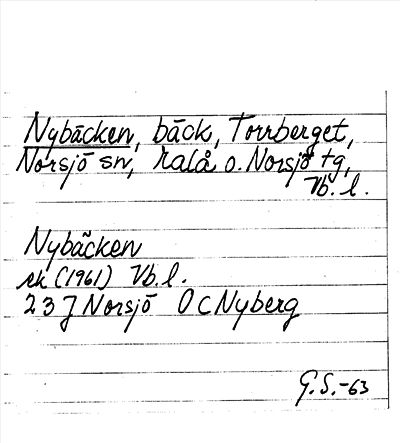 Nybäcken, bäck, Torrberget,
Norsjö sn, Malå o. Norsjö tg,
Vb. l.
Nybäcken
ek (1961) Vb. l.
23 J Norsjö O C Nyberg
G. S. -63